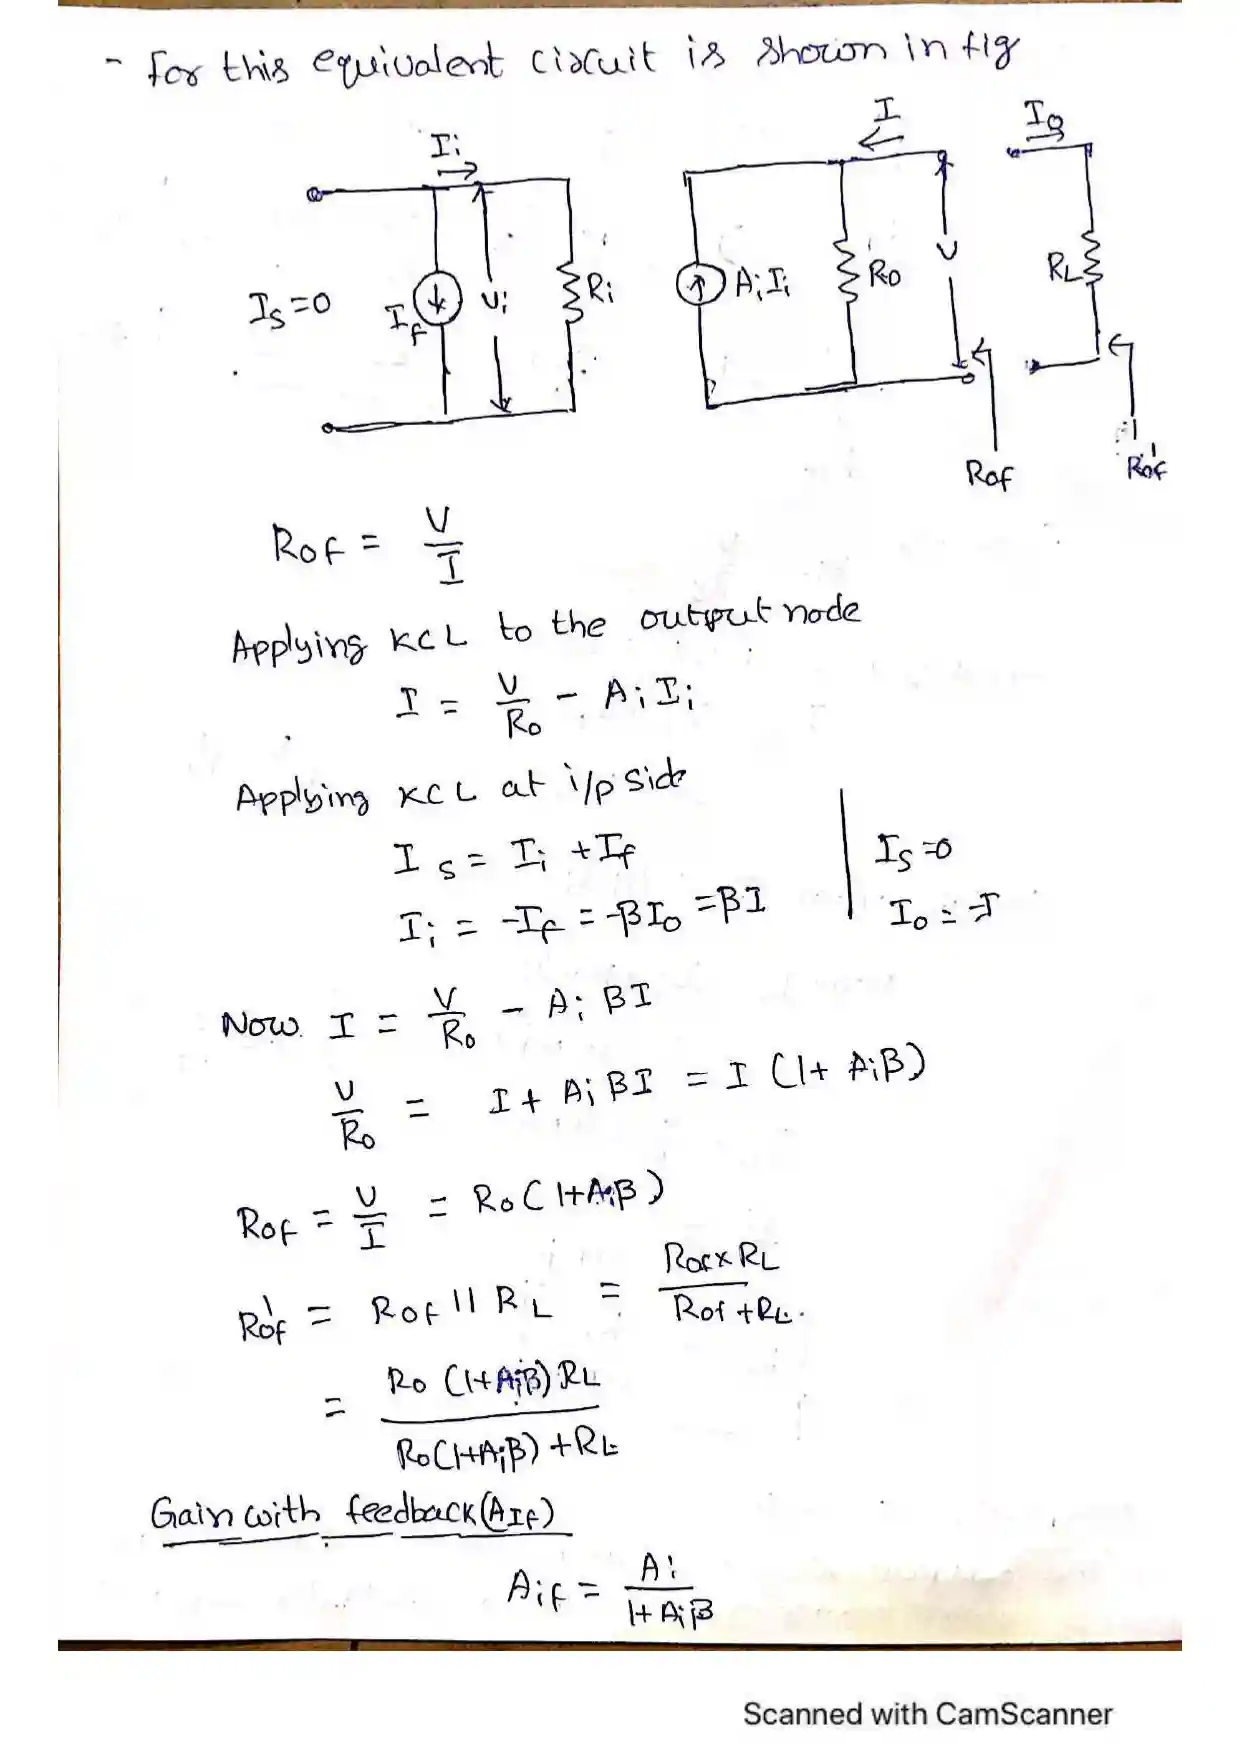 - for this equivalent circuit is shown in fig
Ii
I
Io
Is=0
If
Vi
Ri
AiIi
Ro
V
RL
Rof
R'of
Rof = V/I
Applying KCL to the output node
I = V/Ro - AiIi
Applying KCL at i/p side
Is = Ii + If
Is=0
Ii = -If = -βIo = βI
Io = -I
Now I = V/Ro - Ai βI
V/Ro = I + Ai βI = I (1+ Aiβ)
Rof = V/I = Ro (1+Aiβ)
R'of = Rof || RL = Rof x RL / Rof + RL.
= Ro (1+Aiβ) RL / Ro(1+Aiβ) + RL
Gain with feedback (AIf)
Aif = Ai / 1+ Aiβ
Scanned with CamScanner